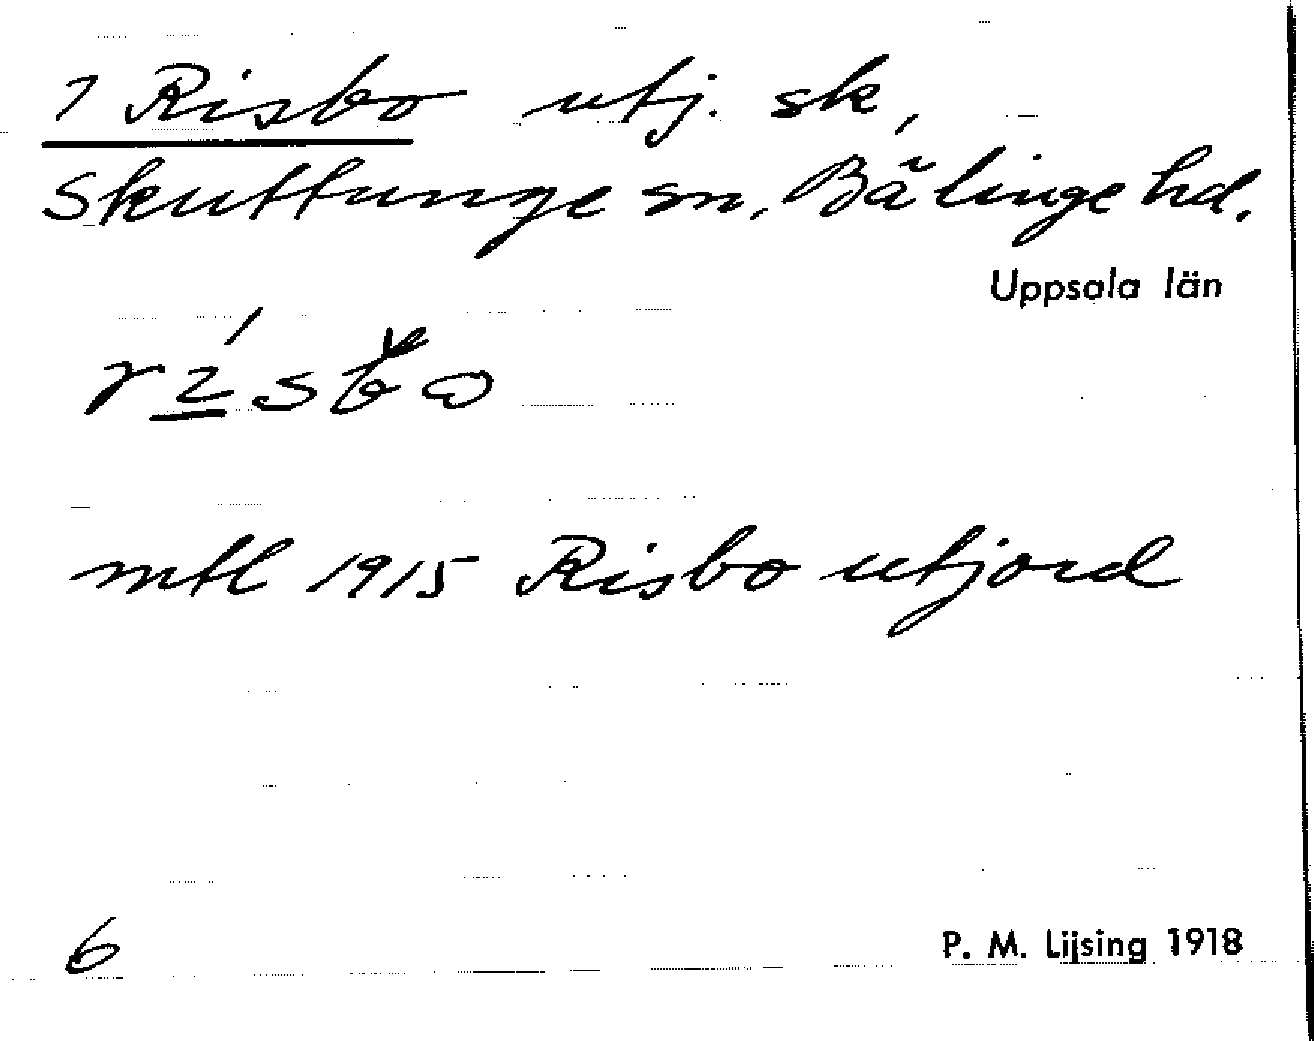 1 Risbo utj. sk,
Skuttunge sn. Bälinge hd.
Uppsala län
mtl 1915 Risbo utjord
6
P. M. Lijsing 1918